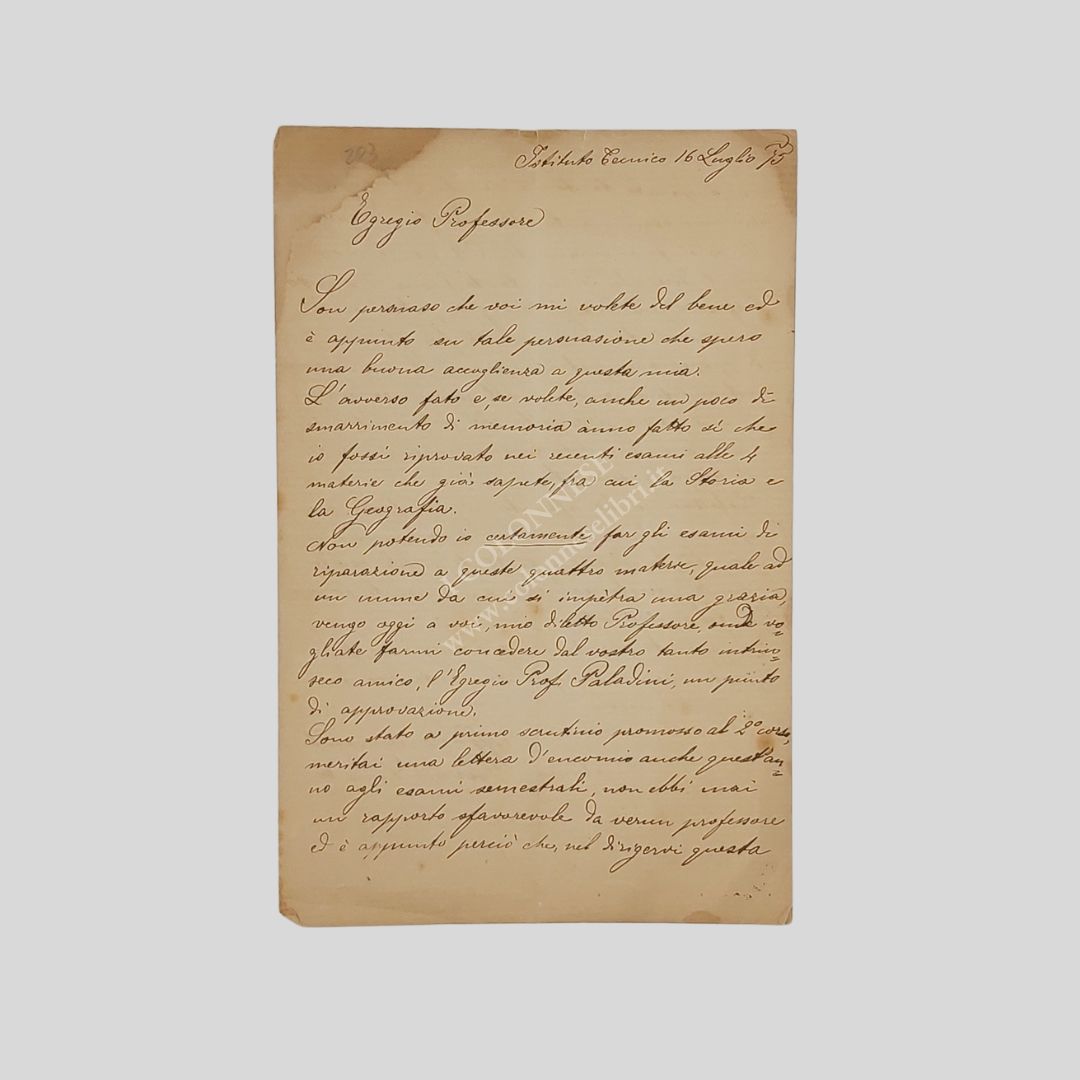 203
Istituto Tecnico 16 Luglio 75
Egregio Professore
Son persuaso che voi mi volete del bene ed
è appunto su tale persuasione che spero
una buona accoglienza a questa mia.
L'avverso fato e, se volete, anche un poco di
smarrimento di memoria ànno fatto sì che
io fossi riprovato nei recenti esami alle 4
materie che già sapete, fra cui la Storia e
la Geografia.
Non potendo io certamente far gli esami di
riparazione a queste quattro materie, quale ad
un nume da cui si impètra una grazia,
vengo oggi a voi, mio diletto Professore, onde vo=
gliate farmi concedere dal vostro tanto intrin=
seco amico, l'Egregio Prof. Paladini, un punto
di approvazione.
Sono stato a primo scrutinio promosso al 2º corso,
meritai una lettera d'encomio anche quest'an=
no agli esami semestrali, non ebbi mai
un rapporto sfavorevole da verun professore
ed è appunto perciò che, nel dirigervi questa
COLONNESE
www.colonneselibri.it